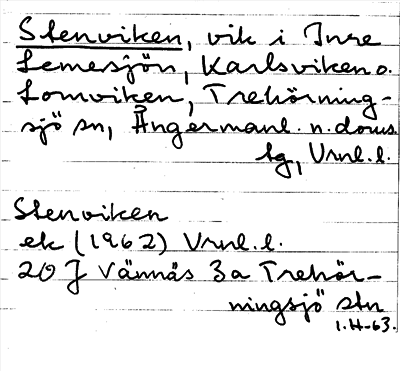 Stenviken, vik i Inre
Lemesjön, Karlsviken o.
Lomviken, Trehörning-
sjö sn, Ångermanl. n. doms
lg, Vrnl. l.
Stenviken
ek (1962) Vrnl. l.
20 J Vännäs 3a Trehör-
ningsjö stn
1.H-63.